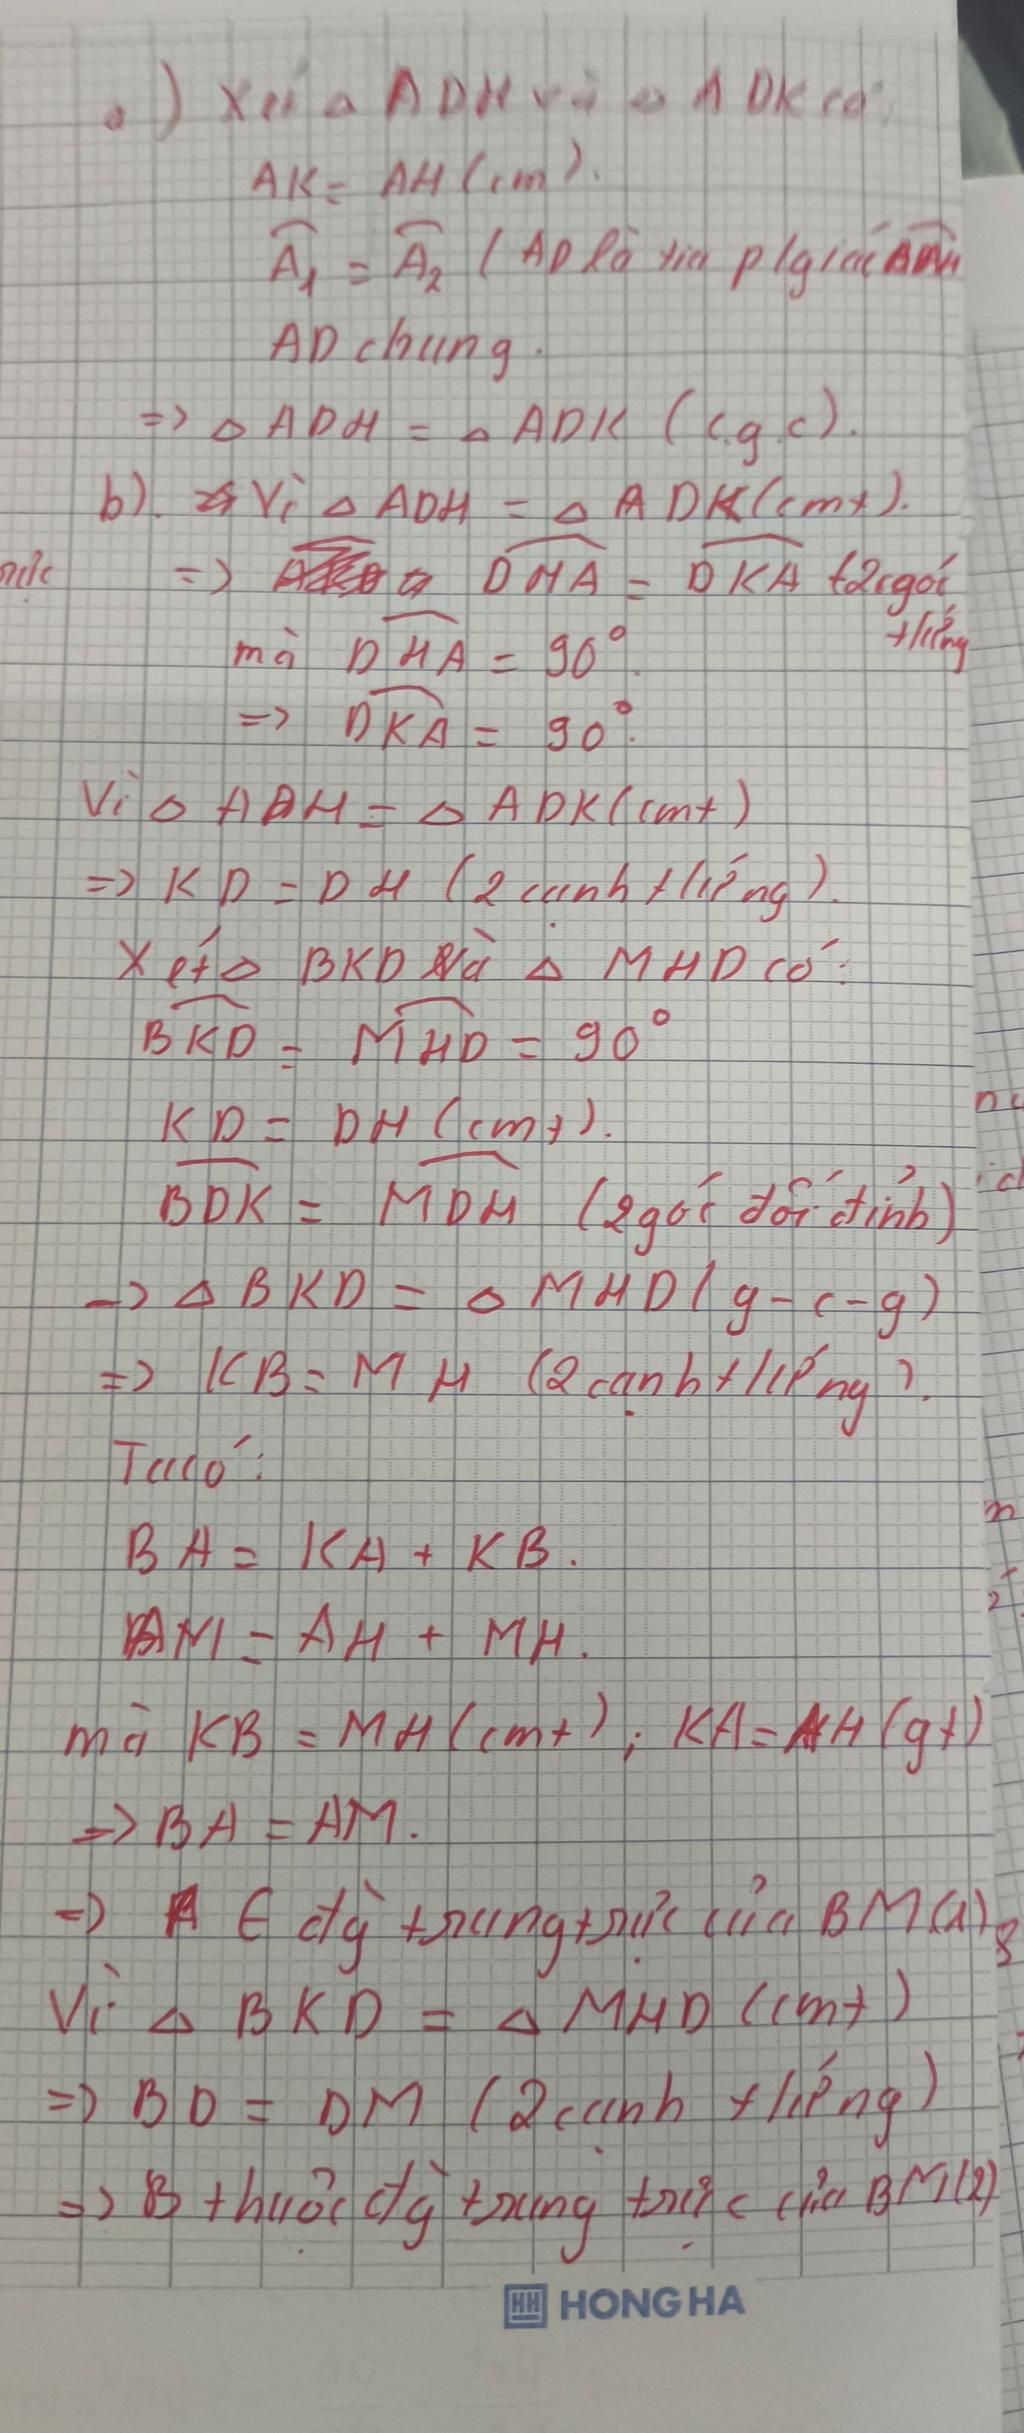 a) Xét △ ADH và △ ADK có:
AK = AH (cm).
A₁ = A₂ (AD là tia p/giác
AD chung.
=> △ ADH = △ ADK (c.g.c).
b). Vì △ ADH = △ ADK (cmt).
=> DHA = DKA (2 góc
t/ứng
mà DHA = 90°.
=> DKA = 90°.
Vì △ ADH = △ ADK (cmt)
=> KD = DH (2 cạnh t/ứng).
Xét △ BKD và △ MHD có:
BKD = MHD = 90°
KD = DH (cmt).
BDK = MDH (2 góc đối đỉnh)
=> △ BKD = △ MHD (g-c-g)
=> KB = MH (2 cạnh t/ứng).
Ta có:
BA = KA + KB.
AM = AH + MH.
mà KB = MH (cmt); KA = AH (gt)
=> BA = AM.
=> A ∈ đg trung trực của BM (1)
Vì △ BKD = △ MHD (cmt)
=> BD = DM (2 cạnh t/ứng)
=> B thuộc đg trung trực của BM (2)
HH HONG HA